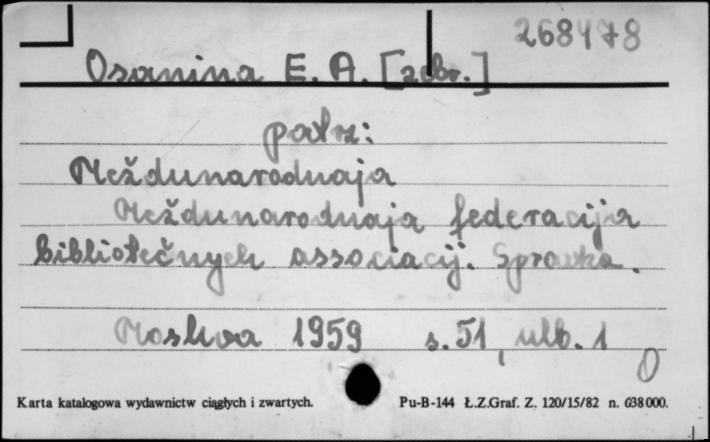 268478
Osanina E. A. [zebr.]
patrz:
Meždunarodnaja
Meždunarodnaja federacija
bibliotečnych associacij. Spravka.
Moskva 1959 s. 51, ulb. 1
Karta katalogowa wydawnictw ciągłych i zwartych. Pu-B-144 Ł.Z.Graf. Z. 120/15/82 n. 638 000.